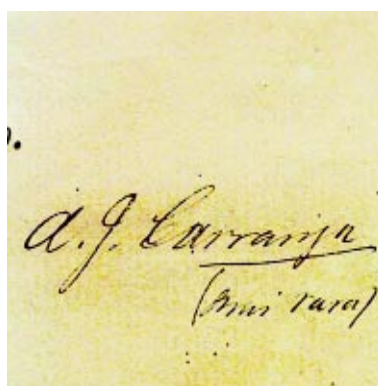 A. J. Carranza
(Mui rara)